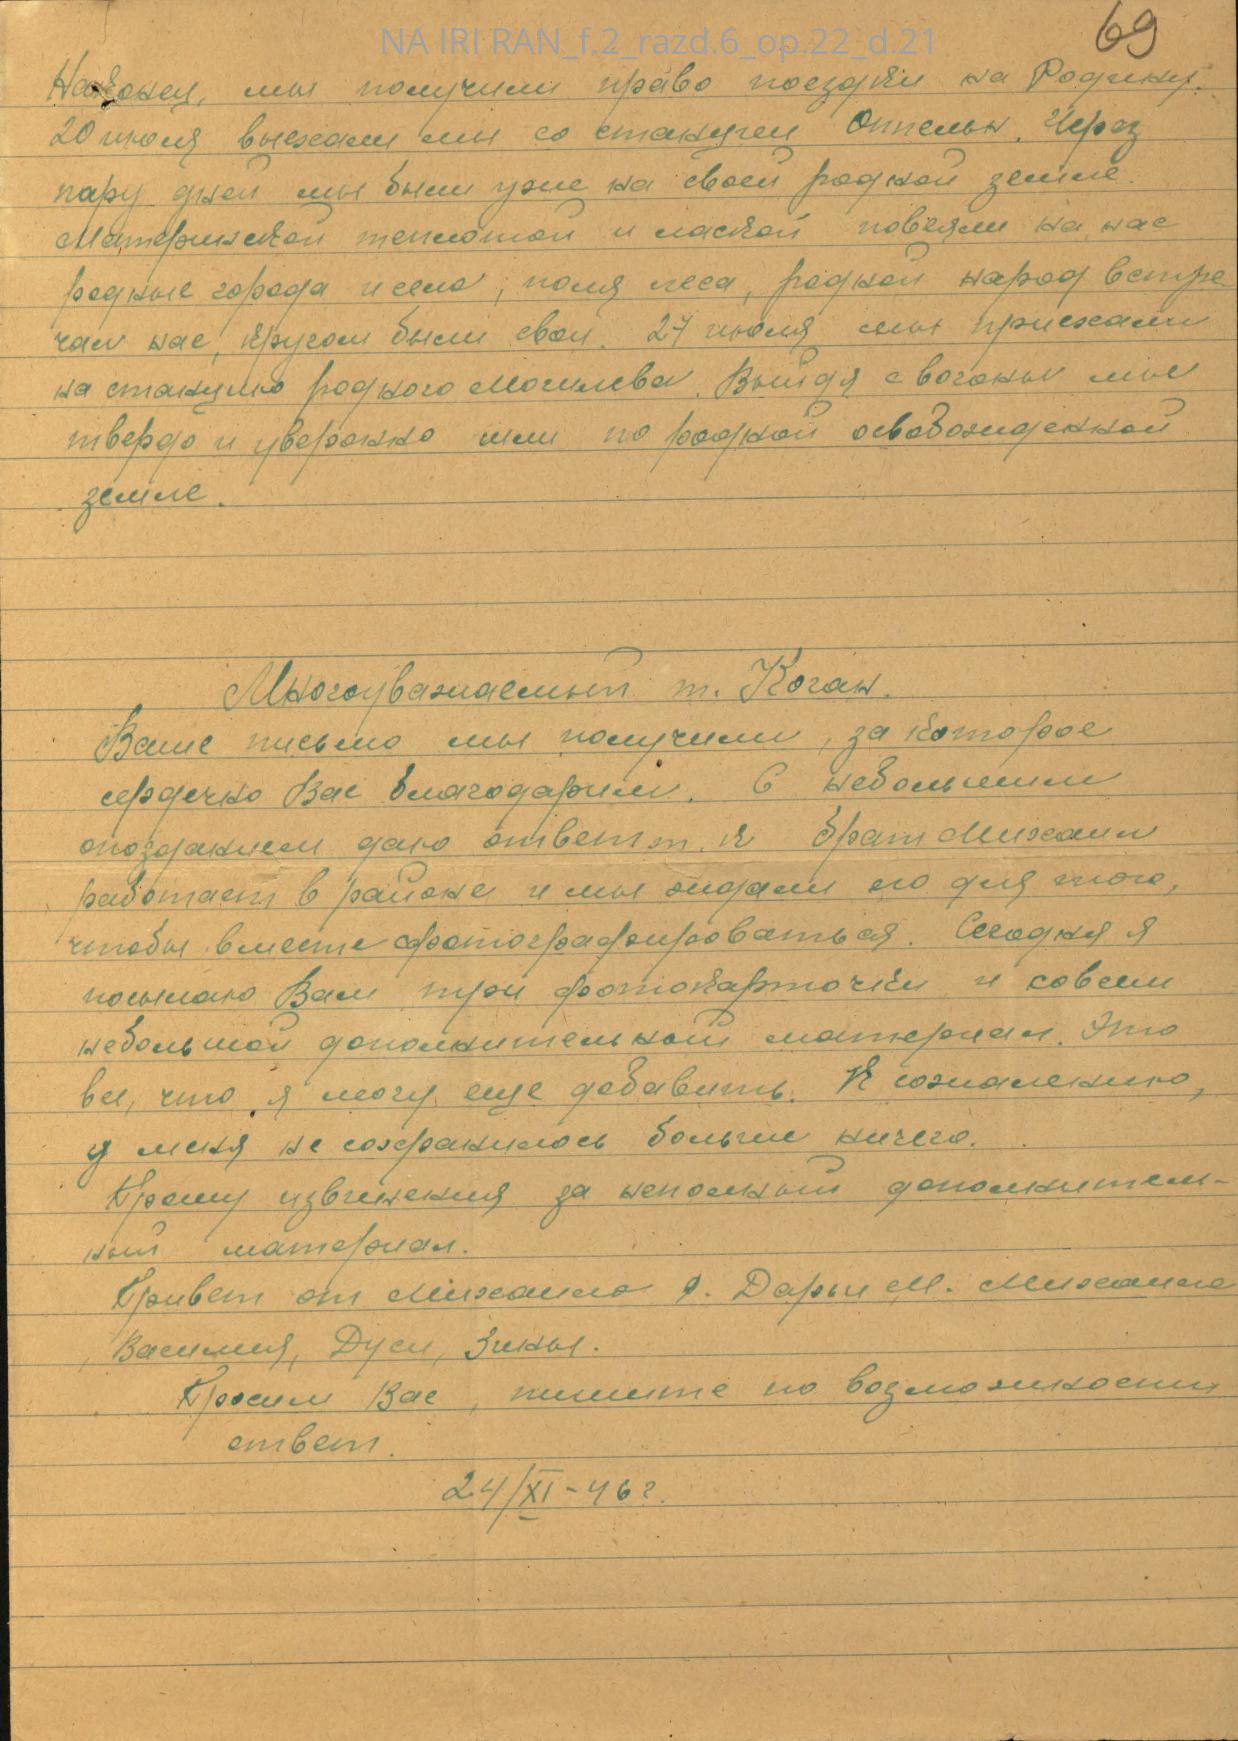 NA IRI RAN_f.2_razd.6_op.22_d.21
69
Наконец, мы получили право поездки на Родину.
20 июля выехали мы со станции Оппельн. Через
пару дней мы были уже на своей родной земле.
Материнской теплотой и лаской повеяли на нас
родные города и села, поля леса, родной народ встре-
чал нас, кругом были свои. 27 июля мы приехали
на станцию родного Могилева. Выйдя с вагона мы
твердо и уверенно шли по родной освобожденной
земле.
Многоуважаемый т. Коган.
Ваше письмо мы получили, за которое
сердечно Вас благодарим. С небольшим
опозданием даю ответ т. к брат Михаил
работает в районе и мы ждали его для того,
чтобы вместе сфотографироваться. Сегодня я
посылаю Вам три фотокарточки и совсем
небольшой дополнительный материал. Это
все, что я могу еще добавить. К сожалению,
у меня не сохранилось больше ничего.
Прошу извинения за неполный дополнитель-
ный материал.
Привет от Михаила Я. Дарьи М. Михаила
, Василия, Дуси, Зины.
Просим Вас, пишите по возможности
ответ.
24/XI-46 г.